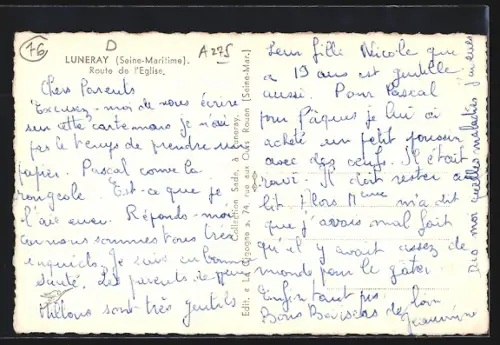 76
D
A275
LUNERAY (Seine-Maritime).
Route de l'Eglise.
Chers Parents
Excusez-moi de vous écrire
sur cette carte mais je n'ai
pas le temps de prendre un
papier. Pascal couve la
rougeole. Est-ce que je
l'ai eue. Réponds-moi
car nous sommes tous très
inquiets. Je suis en bonne
santé. Les parents de
Milons sont très gentils
Collection Sade, à Luneray.
Edit. e La Cigogne a, 74, rue aux Ours Rouen (Seine-Mar.)
Leur fille Nicole qui
a 19 ans est gentille
aussi. Pour Pascal
pour Pâques je lui ai
acheté un petit poussin
avec des œufs. Il était
ravi. Il doit rester au
lit Alors Mème m'a dit
que j'avais mal fait
qu'il y avait assez de
monde pour le gâter
Enfin tant pis.
Bons Baisers de loin
Jeannine
Dis moi quelles maladies j'ai eues